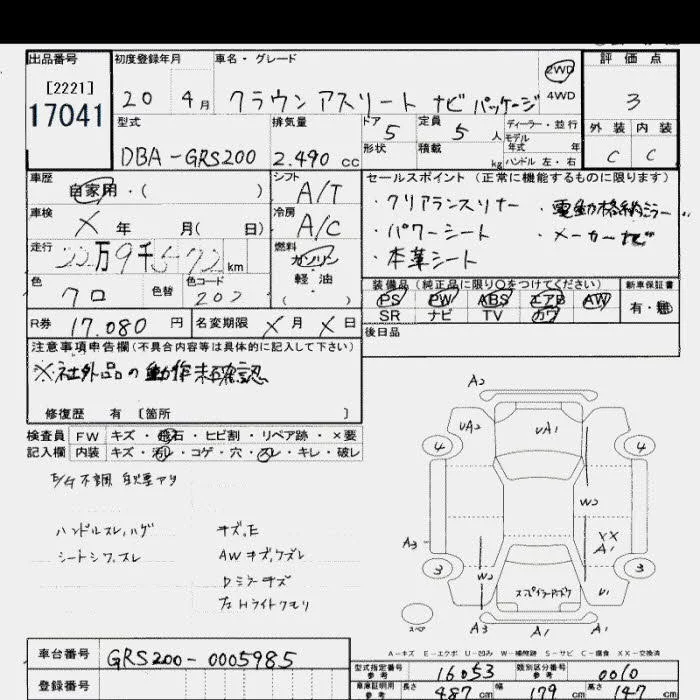 出品番号 初度登録年月 車名・グレード 評価点
[2221]
17041
20 4月 クラウン アスリート ナビパッケージ 2WD 4WD 3
型式 排気量 ドア 5 定員 5 人 ディーラー・並行 外装 内装
モデル年式 年
DBA-GRS200 2.490 cc 形状 積載 kg ハンドル 左・右 C C
車歴 自家用・( ) シフト A/T セールスポイント (正常に機能するものに限ります)
車検 X 年 月( 日) 冷房 A/C ・クリアランスソナー ・電動格納ミラー
・パワーシート ・メーカーナビ
走行 22万9千572km 燃料 ガソリン 軽油 ( ) ・本革シート
色 クロ 色替 色コード 202 装備品 (純正品に限り〇をつけてください) 新車保証書
PS PW ABS エアB AW 有・無
SR ナビ TV カワ
R券 17.080 円 名変期限 X月 X日 後日品
注意事項申告欄(不具合内容等は具体的に記入して下さい)
※社外品の動作未確認
修復歴 有 [箇所 ]
検査員 FW キズ・飛石・ヒビ割・リペア跡・×要
記入欄 内装 キズ・汚レ・コゲ・穴・スレ・キレ・破レ
E/G不調
ハンドルスレ,ハゲ キズ,E
シートシワ,スレ AWキズ,ケズレ
Dミラーキズ
左Hライトクモリ
A2
UA2 UA1
4 4
W2
A3 XX
A1
3 3
W2 U1
A3 A1 A1
スペア
A-キズ E-エクボ U-凹み W-補修跡 S-サビ C-腐食 XX-交換済
車台番号 GRS200-0005985
型式指定番号 参考 16053 類別区分番号 参考 0010
登録番号
車庫証明用 参考 長さ 487 cm 幅 179 cm 高さ 147 cm